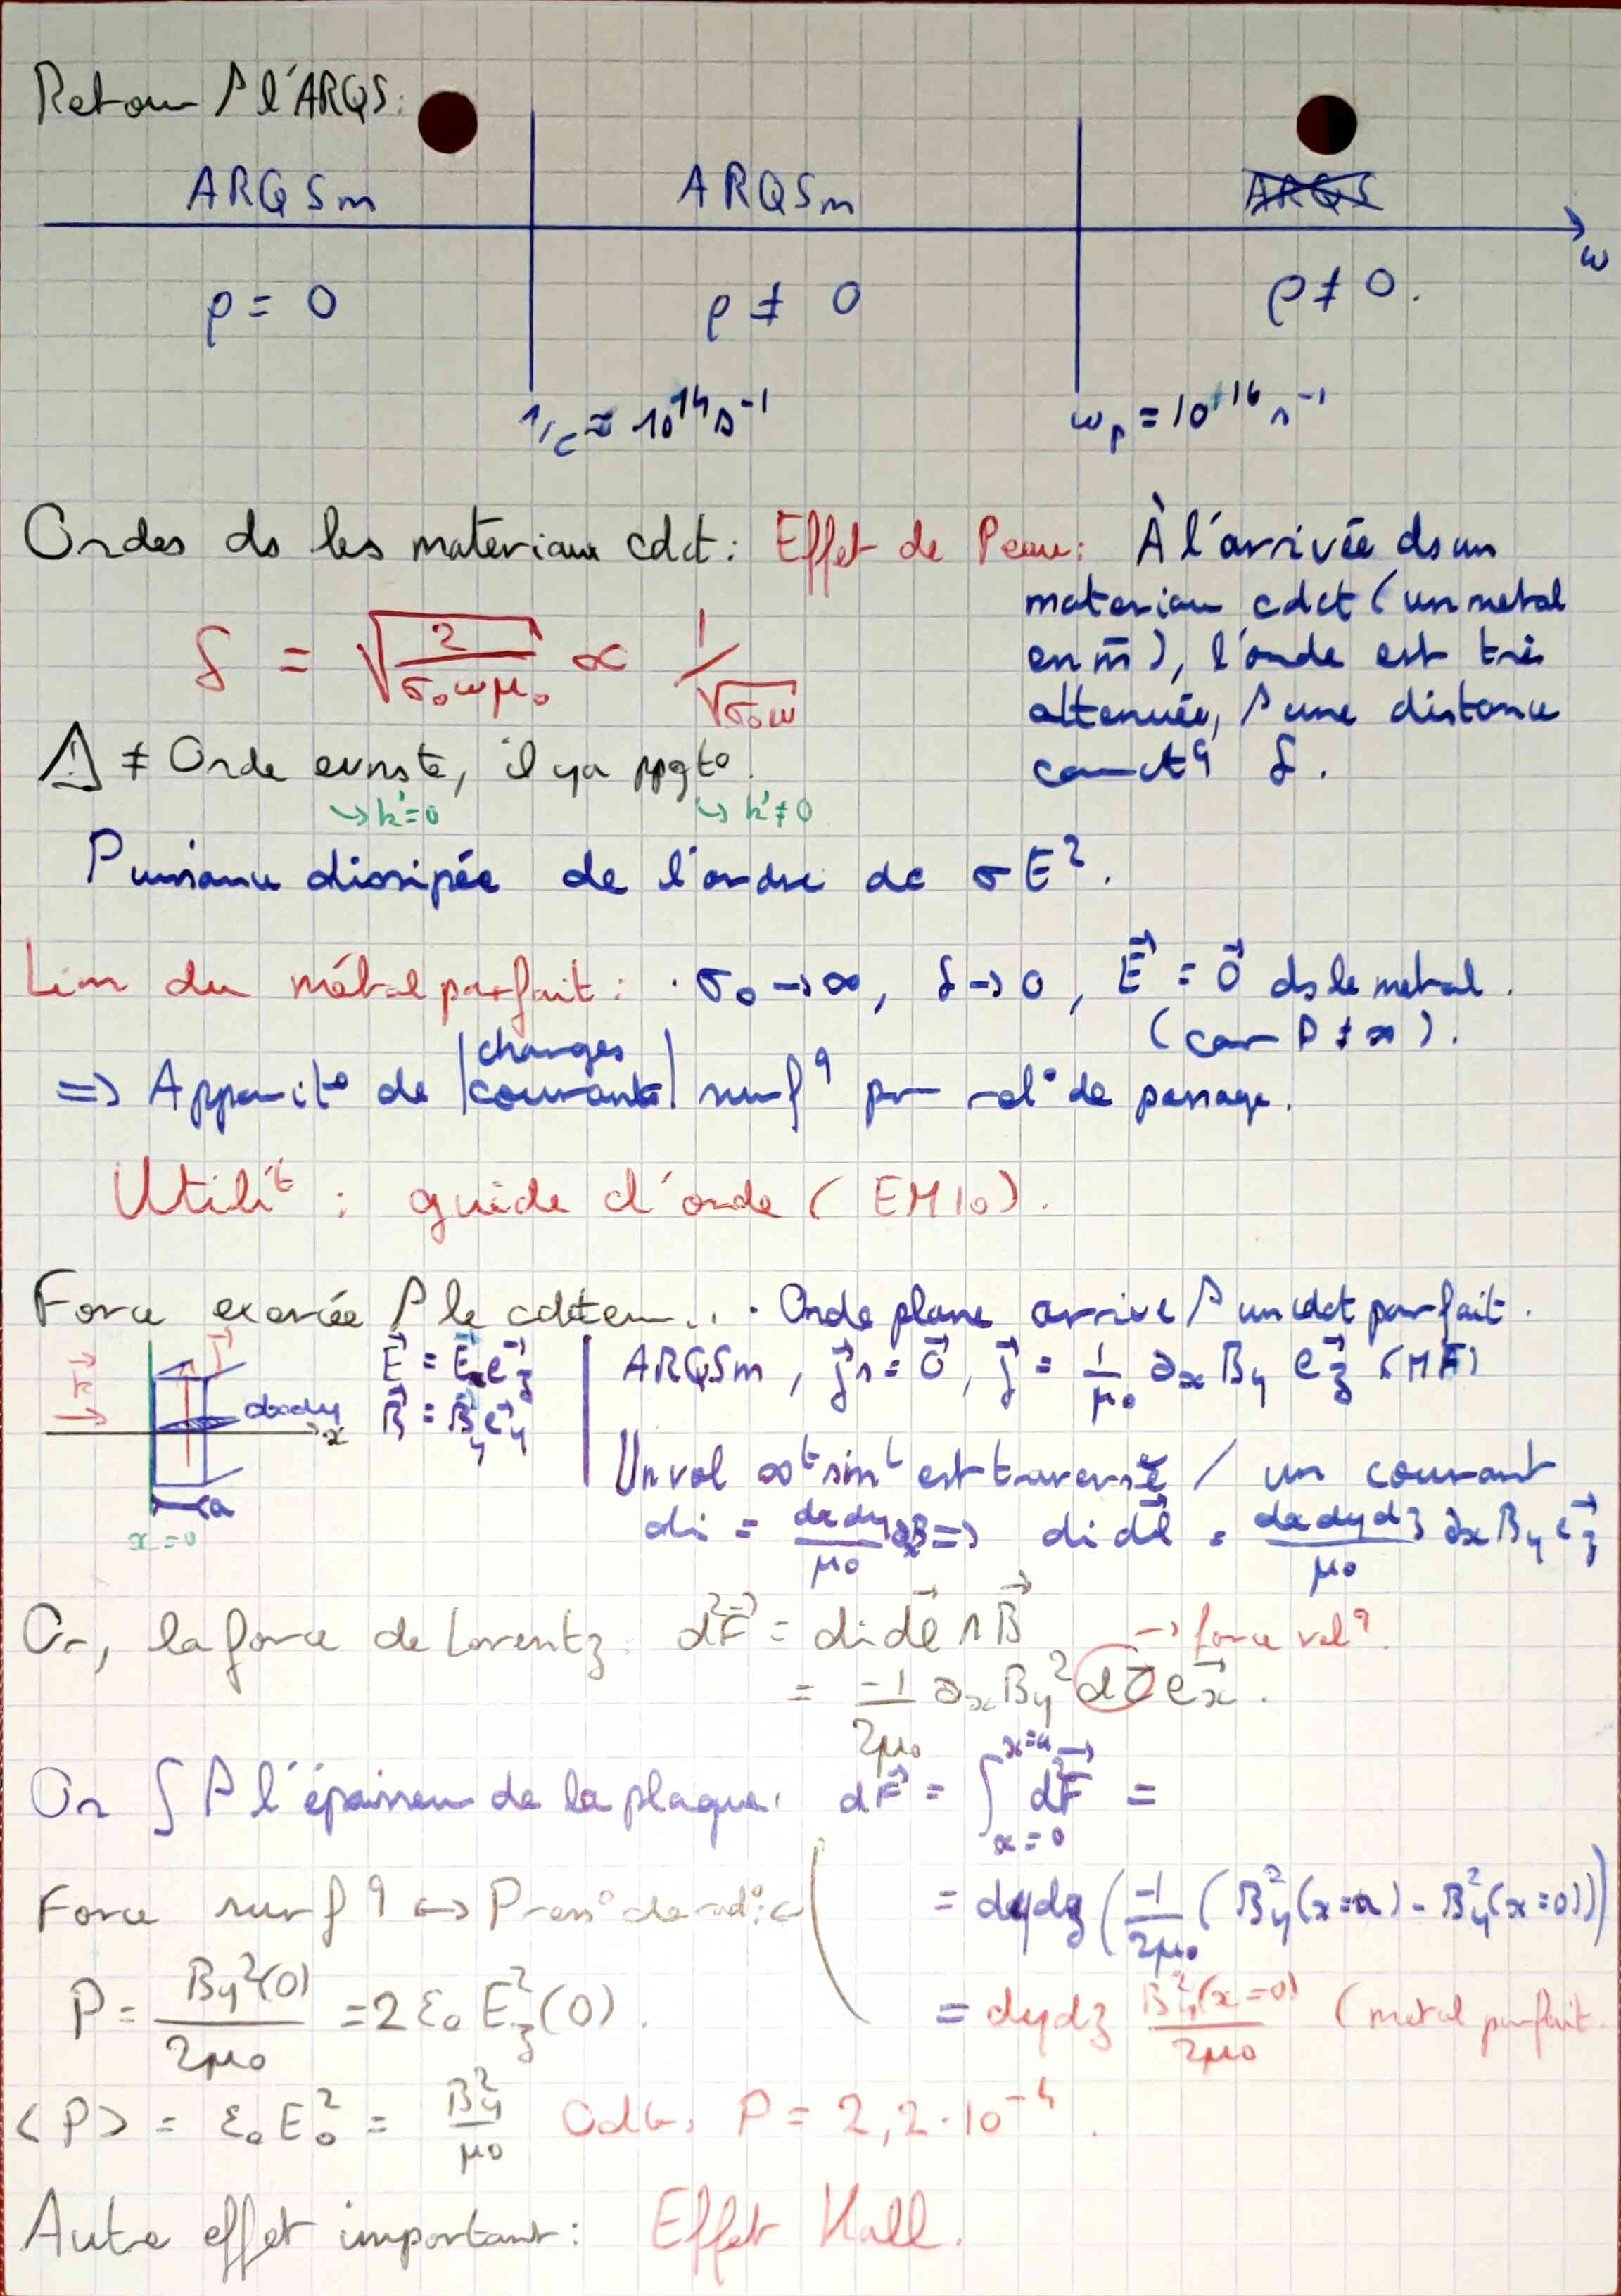 Retour / l'ARQS:
ARQSm ARQSm ARQS
ω
ρ = 0 ρ ≠ 0 ρ ≠ 0.
1/τ ≈ 10^14 s^-1 ω_p = 10^+16 s^-1
Ondes ds les materiaux cdct: Effet de Peau: À l'arrivée ds un
materiau cdct (un metal
en m̄), l'onde est très
attenuée, / une distance
caract^q δ.
δ = √(2/(σ₀ωμ₀)) ∝ 1/√(σ₀ω)
⚠ ≠ Onde evnste, il y a ppgt°.
↳ k'=0 ↳ k'≠0
Puissance dissipée de l'ordre de σE².
Lim du métal parfait: · σ₀ → ∞, δ → 0, E⃗ = 0⃗ ds le metal.
(car P ≠ ∞).
=> Apparit° de |charges courants| surf^q par rel° de passage.
Utilit^é : guide d'onde (EM10).
Force exercée / le cdcteur.. · Onde plane arrive / un cdct parfait.
π⃗ j⃗ dxdy x a x=0
E⃗ = E_z e⃗_z
B⃗ = B_y e⃗_y
ARQSm, j⃗_D = 0⃗, j⃗ = 1/μ₀ ∂x By e⃗_z (MA)
Un vol ∞^t sim^t est traversé / un courant
di = dxdy/μ₀ ∂B => di dl⃗ = dxdydz/μ₀ ∂x By e⃗_z
Or, la force de Lorentz: d²F⃗ = di dl⃗ ∧ B⃗ → force vol^q.
= -1/2μ₀ ∂x By² dτ e⃗_x.
On ∫ / l'épaisseur de la plaque: dF⃗ = ∫_{x=0}^{x=a} d²F⃗ =
= dydz (-1/2μ₀ (By²(x=a) - By²(x=0)))
= dydz By²(x=0)/2μ₀ (métal parfait.
Force surf^q ↔ Press° de radi°
P = By²(0)/2μ₀ = 2ε₀ E_z²(0).
<P> = ε₀E₀² = By²/μ₀ OdG: P = 2,2·10^-4.
Autre effet important: Effet Hall.